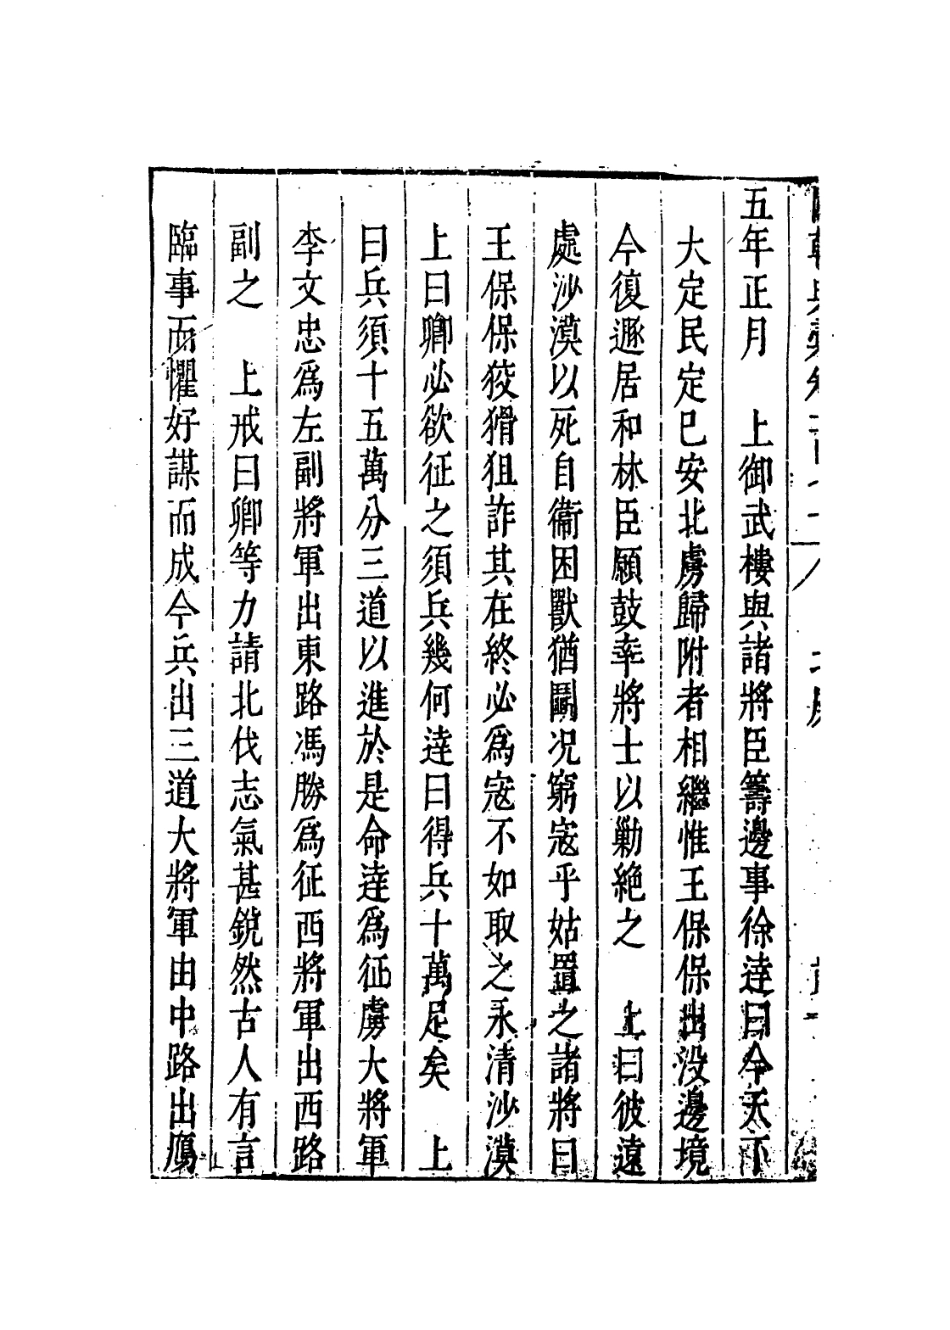 五年正月　上御武樓與諸將臣籌邊事徐逹曰今天下
大定民定已安北虜歸附者相繼惟王保保出没邊境
今復遯居和林臣願鼓率將士以勦絶之　上曰彼遠
處沙漠以死自衞困獸猶鬭况窮寇乎姑置之諸將曰
王保保狡猾狙詐其在終必爲寇不如取之永清沙漠
上曰卿必欲征之須兵幾何逹曰得兵十萬足矣　上
曰兵須十五萬分三道以進於是命逹爲征虜大將軍
李文忠爲左副將軍出東路馮勝爲征西將軍出西路
副之　上戒曰卿等力請北伐志氣甚銳然古人有言
臨事而懼好謀而成今兵出三道大將軍由中路出鴈